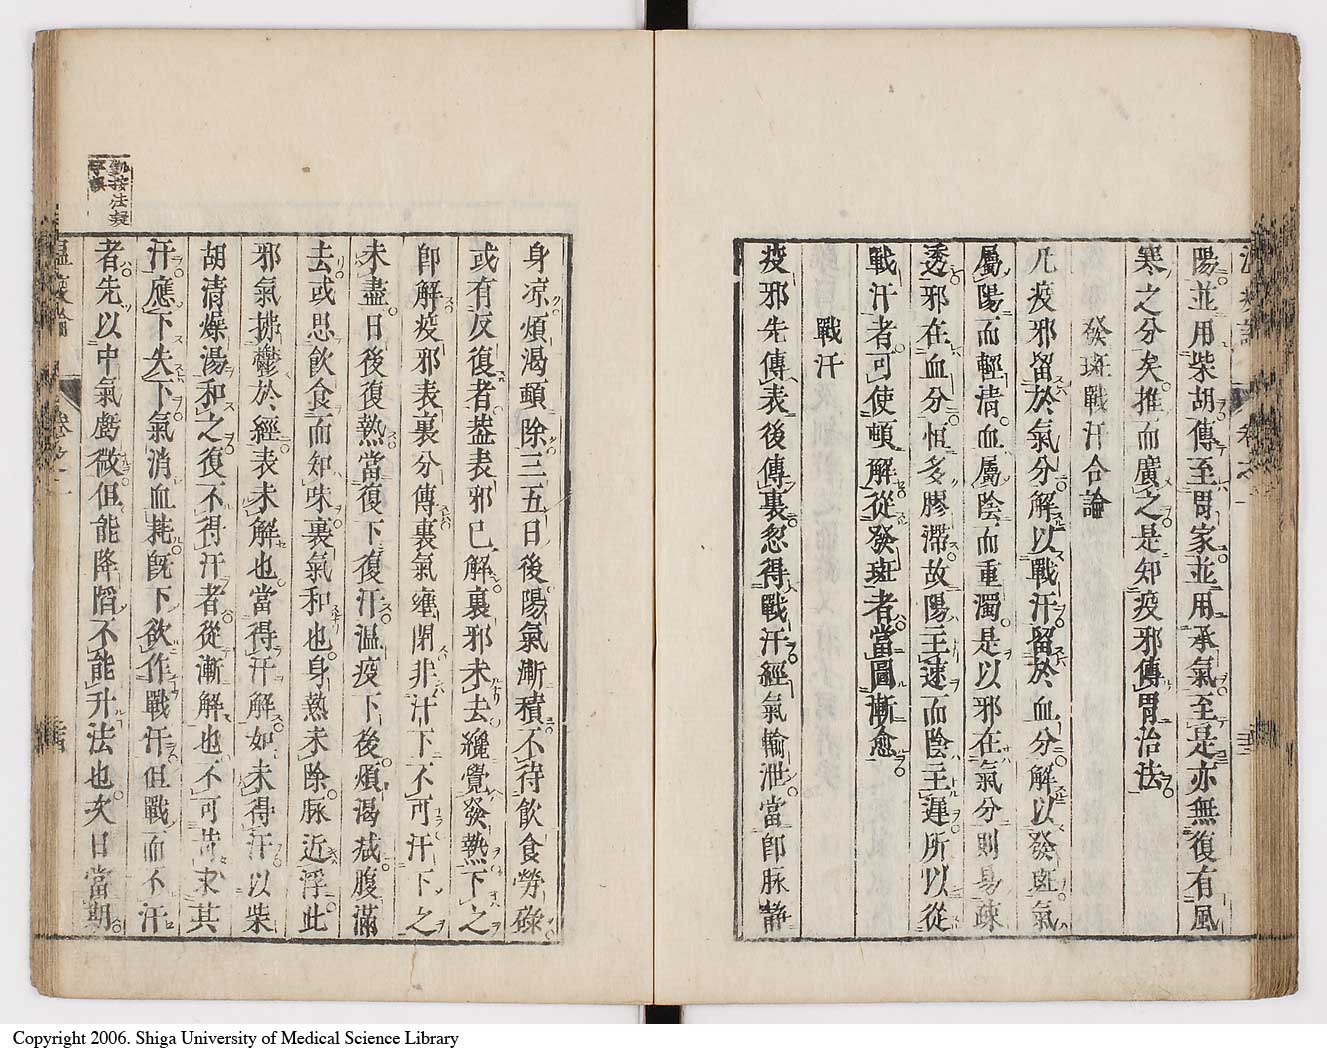 陽並用柴胡傳至胃家並用承氣至是亦無復有風
寒之分矣推而廣之是知疫邪傳胃治法
發斑戰汗合論
凡疫邪留於氣分解以戰汗留於血分解以發斑氣
屬陽而輕清血屬陰而重濁是以邪在氣分則易疎
透邪在血分恒多膠滯故陽主速而陰主遲所以從
戰汗者可使頓解從發斑者當圖漸愈
戰汗
疫邪先傳表後傳裏忽得戰汗經氣輸泄當即脉靜
身凉煩渴頓除三五日後陽氣漸積不待飲食勞碌
或有反復者葢表邪已解裏邪未去纔覺發熱下之
即解疫邪表裏分傳裏氣壅閉非汗下不可汗下之
未盡日後復熱當復下復汗溫疫下後煩渴減腹滿
去或思飲食而知味裏氣和也身熱未除脉近浮此
邪氣拂鬱於經表未解也當得汗解如未得汗以柴
胡清燥湯和之復不得汗者從漸解也不可苛求其
汗應下失下氣消血耗既下欲作戰汗但戰而不汗
者先以中氣虧微但能降陷不能升法也次日當期
勤按法疑
字誤
溫疫論
卷之一